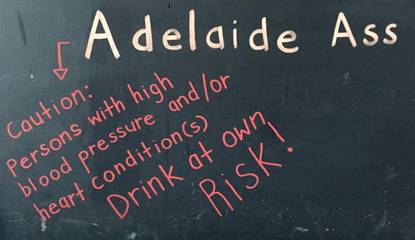 Adelaide Ass
Caution:
Persons with high
blood pressure and/or
heart condition(s)
Drink at own
RISK!